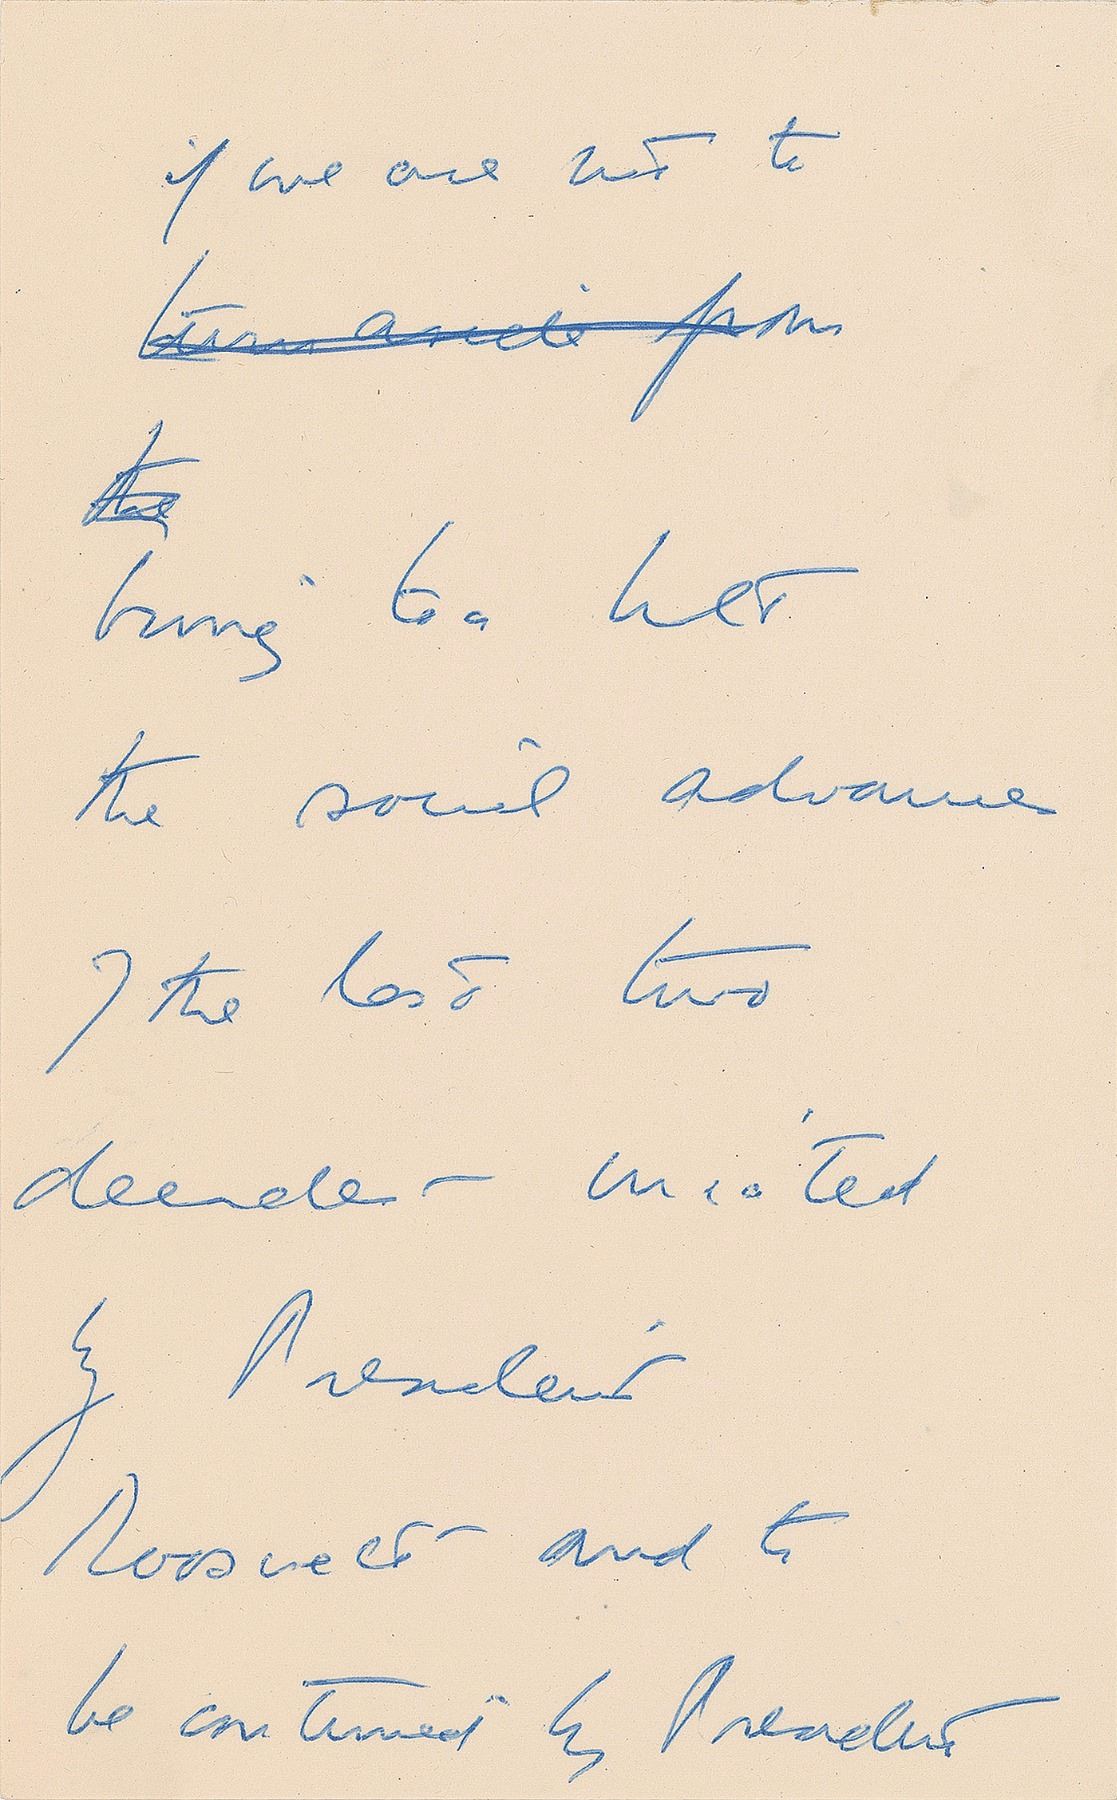 if we are not to
turn aside from
the
bring to a halt
the social advances
of the last two
decades – initiated
by President
Roosevelt and to
be continued by President